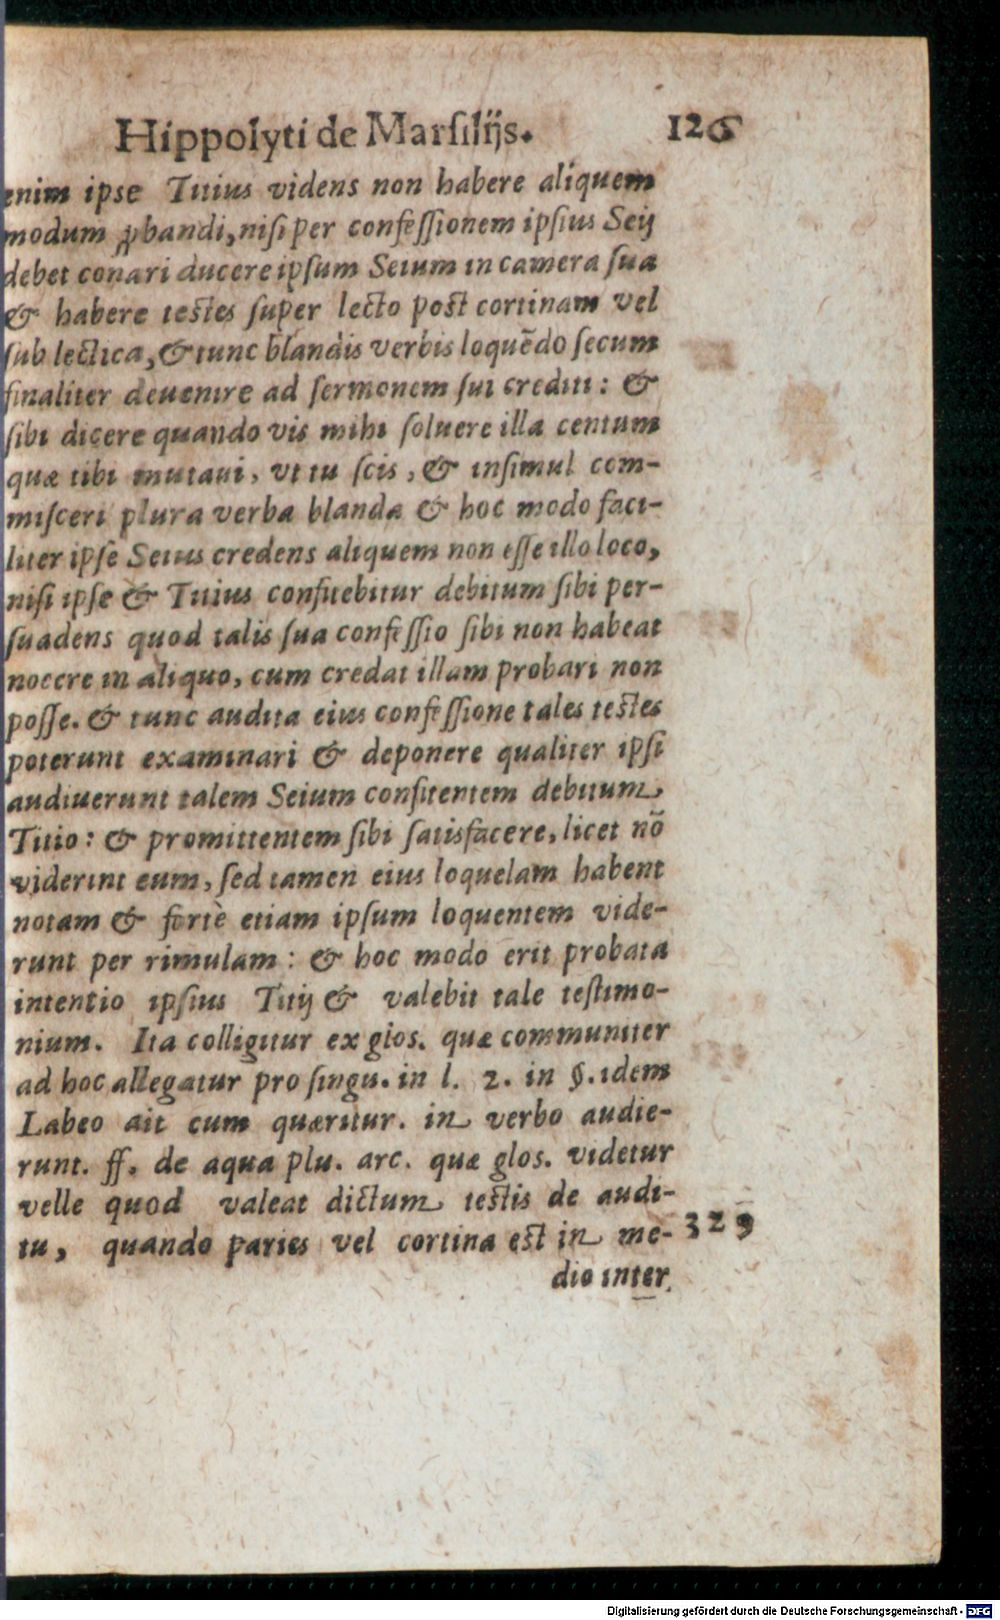 Hippolyti de Marſilijs. 126
enim ipse Titius videns non habere aliquem
modum ꝓbandi, niſi per confeſſionem ipſius Seij
debet conari ducere ipſum Seium in camera ſua
& habere testes ſuper lecto post cortinam vel
ſub lectica, & tunc blandis verbis loquēdo ſecum
finaliter deuenire ad ſermonem ſui crediti: &
ſibi dicere quando vis mihi ſoluere illa centum
quæ tibi mutaui, vt tu ſcis, & inſimul com-
miſceri plura verba blanda & hoc modo faci-
liter ipſe Seius credens aliquem non eſſe illo loco,
niſi ipſe & Titius confitebitur debitum ſibi per-
ſuadens quod talis ſua confeſſio ſibi non habeat
nocere in aliquo, cum credat illam probari non
poſſe. & tunc audita eius confeſſione tales testes
poterunt examinari & deponere qualiter ipſi
audiuerunt talem Seium confitentem debitum,
Titio: & promittentem ſibi ſatisfacere, licet nō
viderint eum, ſed tamen eius loquelam habent
notam & fortè etiam ipſum loquentem vide-
runt per rimulam: & hoc modo erit probata
intentio ipſius Titij & valebit tale teſtimo-
nium. Ita colligitur ex glos. quæ communiter
ad hoc allegatur pro ſingu. in l. 2. in §. idem
Labeo ait cum quæritur. in verbo audie-
runt. ff. de aqua plu. arc. quæ glos. videtur
velle quod valeat dictum testis de audi-
tu, quando paries vel cortina est in me- 329
dio inter
Digitalisierung gefördert durch die Deutsche Forschungsgemeinschaft - DFG